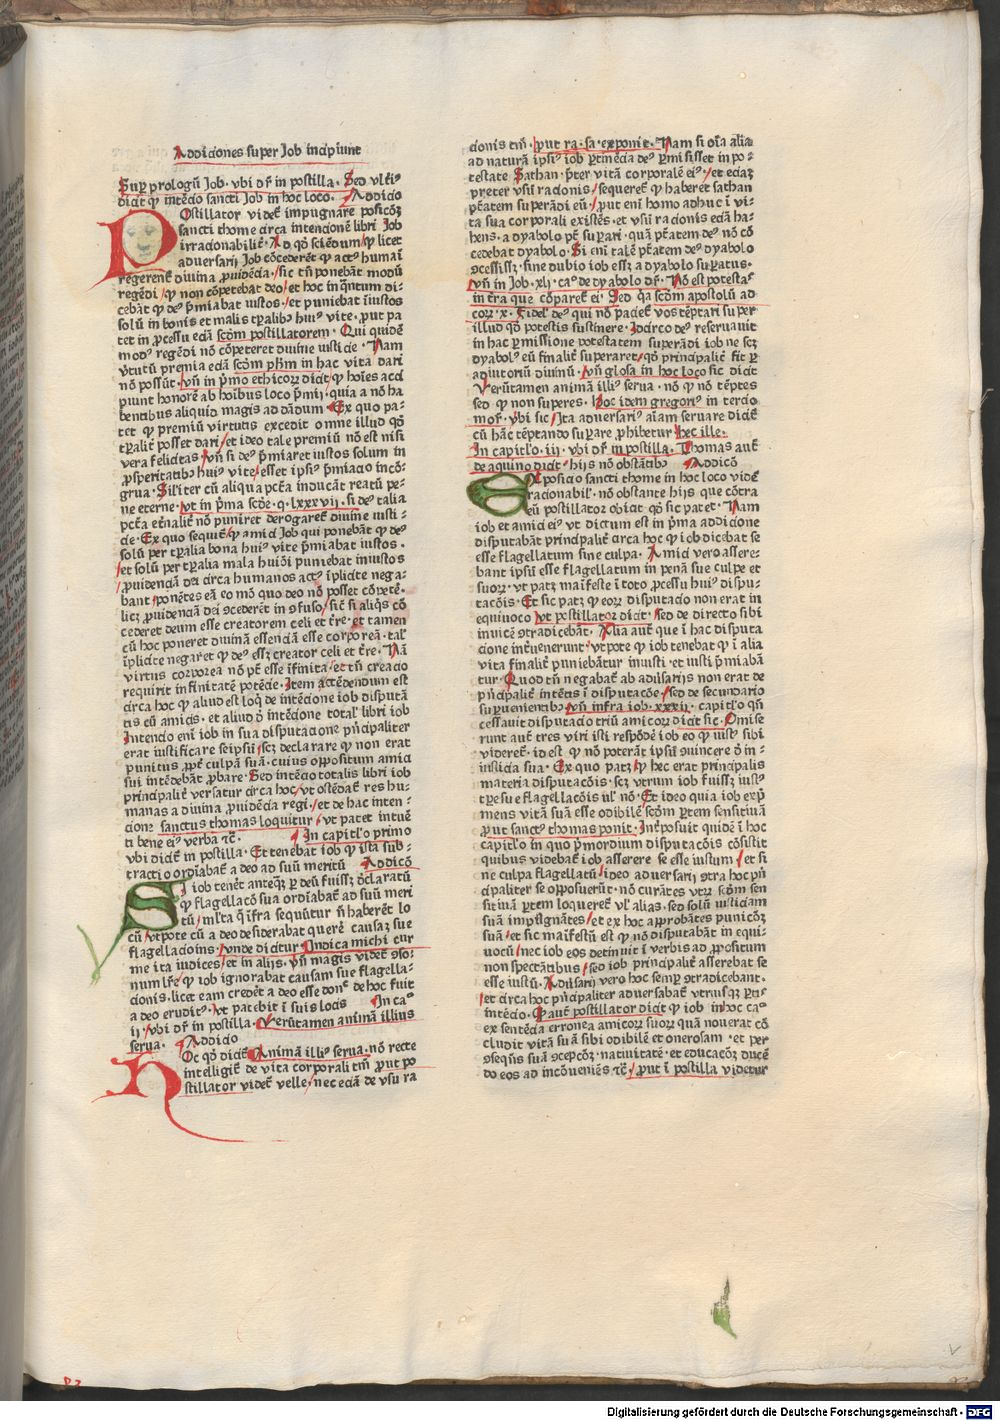 Addiciones super Job incipiunt
Suꝑ prologũ Job. vbi dr̃ in postilla. Sed vlti᷑
dicit ꝙ intẽcio sancti Job in hoc loco. Addicio
Postillator videt᷑ impugnare posicõꝫ
sancti thome circa intencionẽ libri Job
irracionabilit᷑. Ad qᷣd sciẽdum/ ꝙ licet
aduersarij Job cõcederẽt ꝙ actꝰ humaĩ
regerent᷑ diuina ꝓuidẽcia/ sic tñ ponebãt modũ
regẽdi/ ꝙ non cõpetebat deo/ et hoc inqͣntum di-
cebãt ꝙ deꝰ p̃miabat iustos/ et puniebat iĩustos
solũ in bonis et malis tꝑalibꝫ huiꝰ vite. ꝓut pa
tet in ꝓcessu eciã scd̃m postillatorem. Qui quidẽ
modꝰ regẽdi nõ cõpeteret diuine iusticie. Nam
v̑tutũ premia eciã scd̃m ph̃m in hac vita dari
nõ possũt. vñ in p̃mo ethicoꝝ dicit/ ꝙ hoĩes acci
piunt honorẽ ab hoĩbus loco p̃mij/ quia a nõ ha
bentibus aliquid magis ad dãdum. Ex quo pa-
tet ꝙ premiũ virtutis excedit omne illud qᷣd
tꝑalit᷑ posset dari/ et ideo tale premiũ nõ est nisi
vera felicitas. vñ si deꝰ p̃miaret iustos solum in
ꝓsperitatibꝫ huiꝰ vite/ esset ipsiꝰ p̃miacio incõ-
grua. Sil᷑iter cũ aliqua pctã inducãt reatũ pe-
ne eterne. vt in p̃ma scd̃e. q. lxxxvij. si deꝰ talia
pctã et᷑nalit᷑ nõ puniret derogaret᷑ diuine iusti-
cie. Ex quo sequit᷑/ ꝙ amici Job qui ponebãt ꝙ deꝰ
solũ per tꝑalia bona huiꝰ vite p̃miabat iustos.
et solũ per tꝑalia mala huiꝰdi puniebat iniustos
ꝓuidenciã dei circa humanos actꝰ ĩplicite nega-
bant. ponẽtes eã eo mõ quo deo nõ posset cõpete᷑.
licꝫ ꝓuidenciã dei ꝯcederẽt in ꝯfuso/ sic᷑ si aliqͥs cõ
cederet deum esse creatorem celi et t᷑re. et tamen
cũ hoc poneret diuinã essenciã esse corporeã. talꝭ
ĩplicite negaret ꝙ deꝰ essꝫ creator celi et t᷑re. Nã
virtus corporea nõ pt̃ esse ĩfinita/ et tñ creacio
requirit infinitatẽ potẽcie. Item attẽdendum est
circa hoc ꝙ aliud est loqͥ de intẽcione iob disputã
tis cũ amicis. et aliud ð intẽcione totalꝭ libri iob
Intencio eni᷑ iob in sua disputacione pͥncipaliter
erat iustificare seipsũ/ scꝫ declarare ꝙ non erat
punitus ꝓpt᷑ culpã suã. cuius oppositum amici
sui intẽdebãt ꝓbare. Sed intẽcio totalis libri iob
principalit᷑ versatur circa hoc/ vt ostẽdat᷑ res hu-
manas a diuina ꝓuidẽcia regi/ et de hac inten-
cione sanctus thomas loquitur/ vt patet intuẽ
ti bene eiꝰ verba ⁊c̃. In capitl᷑o primo
vbi dicit᷑ in postilla. Et tenebat iob ꝙ ista sub-
tractio ordiabat᷑ a deo ad suũ meritũ Addicõ
Si iob tenẽt anteqͣꝫ ꝑ deũ fuissꝫ ð̃claratũ
ꝙ flagellacõ sua ordiabat᷑ ad suũ meri
tũ/ ml᷑ta q̃ ĩfra sequũtur ñ haberẽt lo
cũ/ vtpote cũ a deo desiderabat quere᷑ causaꝫ sue
flagellacionis. vnde dicitur Indica michi cur
me ita iudices/ et in alijs. vñ magis videt᷑ ꝯso-
num lr̃e/ ꝙ iob ignorabat causam sue flagella-
cionis. licet eam credẽt a deo esse donc̃ de hoc fuit
a deo eruditꝰ/ vt patebit ĩ suis locis In caº
ij. vbi dr̃ in postilla. Verũtamen animã illius
serua. Addicio
Hoc qᷣd dicit᷑ Animã illiꝰ serua. nõ recte
intelligit᷑ de vita corporali tm̃ ꝓut po
stillator videt᷑ velle/ nec eciã de vsu ra
cionis tm̃. ꝓut ra. sa. exponit. Nam si oĩa alia
ad naturã ipsiꝰ iob ꝑtinẽcia deꝰ ꝑmisisset in po-
testate Sathan. p̃ter vitã corporalẽ eiꝰ/ et eciaꝫ
preter vsũ racionis/ sequeret᷑ ꝙ haberet sathan
pt̃atem suꝑãdi eũ/ ꝓut eni᷑ homo adhuc ĩ vi-
ta sua corporali existẽs. et vsũ racionis eciã ha-
bens. a dyabolo pt̃ suꝑari. quã pt̃atem deꝰ nõ cõ
cedebat dyabolo. Si eni᷑ talẽ pt̃atem deꝰ dyabolo
ꝯcessissꝫ. sine dubio iob essꝫ a dyabolo suꝑatus.
vñ in Job. xlj. caº de dyabolo dr̃. Nõ est potestaˢ
in t᷑ra que cõparet᷑ ei. Sed qꝫ scd̃m apostolũ ad
corꝝ. x. Fidelꝭ deꝰ qui nõ paciet᷑ vos tẽptari super
illud qᷣd potestis sustinere. Idcirco deꝰ reseruauit
in hac ꝑmissione potestatem suꝑãdi iob ne scꝫ
dyabolꝰ eũ finalit᷑ superaret/ qᷣd principalit᷑ fit ꝑ
adiutoriũ diuinũ. vñ glosa in hoc loco sic dicit
Verũtamen animã illiꝰ serua. nõ ꝙ nõ tẽptes
sed ꝙ non superes. Hoc idem gregoriꝰ in tercio
moꝝ. vbi sic. Ita aduersariꝰ aĩam seruare dicit᷑
cũ hãc tẽptando suꝑare ꝓhibetur hec ille.
In capitl᷑o. iij. vbi dr̃ in postilla. Thomas aut᷑
de aquino dicit. hijs nõ obstãtibꝫ Addicõ
Exposicio sancti thome in hoc loco videt᷑
racionabil᷑. nõ obstante hijs que cõtra
eũ postillatoꝛ obicit. qᷣd sic patet. Nam
iob et amici eiꝰ vt dictum est in p̃ma addicione
disputabãt principalit᷑ circa hoc ꝙ iob dicebat se
esse flagellatum sine culpa. Amici vero assere-
bant ipsũ esse flagellatum in penã sue culpe et
suoꝝ. vt patꝫ maĩfeste ĩ toto ꝓcessu huiꝰ dispu-
tacõis. Et sic patꝫ ꝙ eoꝝ disputacio non erat in
equiuoco vt postillator dicit. sed de directo sibi
inuicẽ ꝯtradicebãt. Alia aut᷑ que ĩ hac disputa
cione int᷑uenerunt. vtpote ꝙ iob tenebat ꝙ ĩ alia
vita finalit᷑ puniebãtur iniusti. et iusti p̃miabã
tur. Quod tñ negabat᷑ ab aduersarijs non erat de
pͥncipalit᷑ intẽtis ĩ disputacõe. sed de secundario
suꝑuenientibꝫ. vñ infra iob. xxxij. capitl᷑o qñ
cessauit disputacio triũ amicoꝝ dicit sic. Omise
runt aut᷑ tres viri isti respõdẽ iob eo ꝙ iustꝰ sibi
videret᷑. id est ꝙ nõ poterãt ipsũ ꝯuincere ð in-
iusticia sua. Ex quo patꝫ/ ꝙ hec erat principalis
materia disputacõis. scꝫ vtrum iob fuissꝫ iustꝰ
tꝑe sue flagellacõis ul᷑ nõ. Et ideo quia iob exp̃
mens vitã suã esse odibilẽ scd̃m ꝑtem sensitiuã
ꝓut sanctꝰ thomas ponit. Int᷑posuit quidẽ ĩ hoc
capitl᷑o in quo p̃mordium disputacõis cõsistit
quibus videbat᷑ iob asserere se esse iustum/ et si
ne culpa flagellatũ/ ideo aduersarij ꝯtra hoc pͥn
cipaliter se opposuerũt. nõ curãtes vtꝝ scd̃m sen
sitiuã ꝑtem loqueret᷑ vl᷑ alias. sed solũ iusticiam
suã impugnãtes/ et ex hoc approbãtes punicõꝫ
suã. et sic maĩfestũ est ꝙ nõ disputabãt in equi-
uocũ/ nec iob eos detinuit ĩ verbis ad ꝓpositum
non spectãtibus/ sed iob principalit᷑ asserebat se
esse iustũ. Aduersarij vero hoc semꝑ ꝯtradicebant.
et circa hoc pͥncipaliter aduersabat᷑ vtrusqꝫ ꝑtiˢ
intẽcio. Qꝫ aut᷑ postillator dicit ꝙ iob in hoc caº
ex sentẽcia erronea amicoꝝ suoꝝ quã nouerat cõ
cludit vitã suã sibi odibilẽ et onerosam. et per
ꝯseqñs suã ꝯcepcõꝫ. natiuitatẽ. et educacõꝫ ducẽ
do eos ad incõueniẽs ⁊c̃. ꝓut ĩ postilla videtur
Digitalisierung gefördert durch die Deutsche Forschungsgemeinschaft - DFG